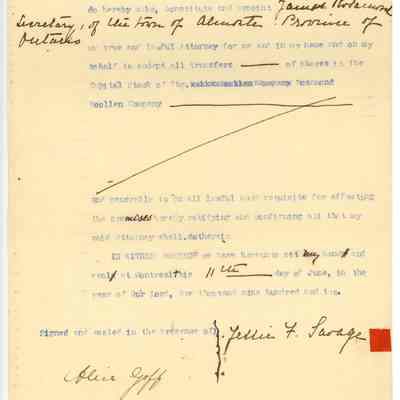 do hereby make, constitute and appoint James Rosamond
Secretary, of the Town of Almonte Province of
Ontario
my true and lawful Attorney for me and in my name and on my
behalf to accept all transfers of shares in the
Capital Stock of the Rosamond
Woollen Company
and generally to do all lawful acts requisite for effecting
the premises hereby ratifying and confirming all that my
said Attorney shall do therein
IN WITNESS WHEREOF we have hereunto set my hand and
seal at Montreal this 11th day of June, in the
year of Our Lord, One thousand nine hundred and ten.
Signed and sealed in the presence of
Jessie F. Savage
Alice Goff